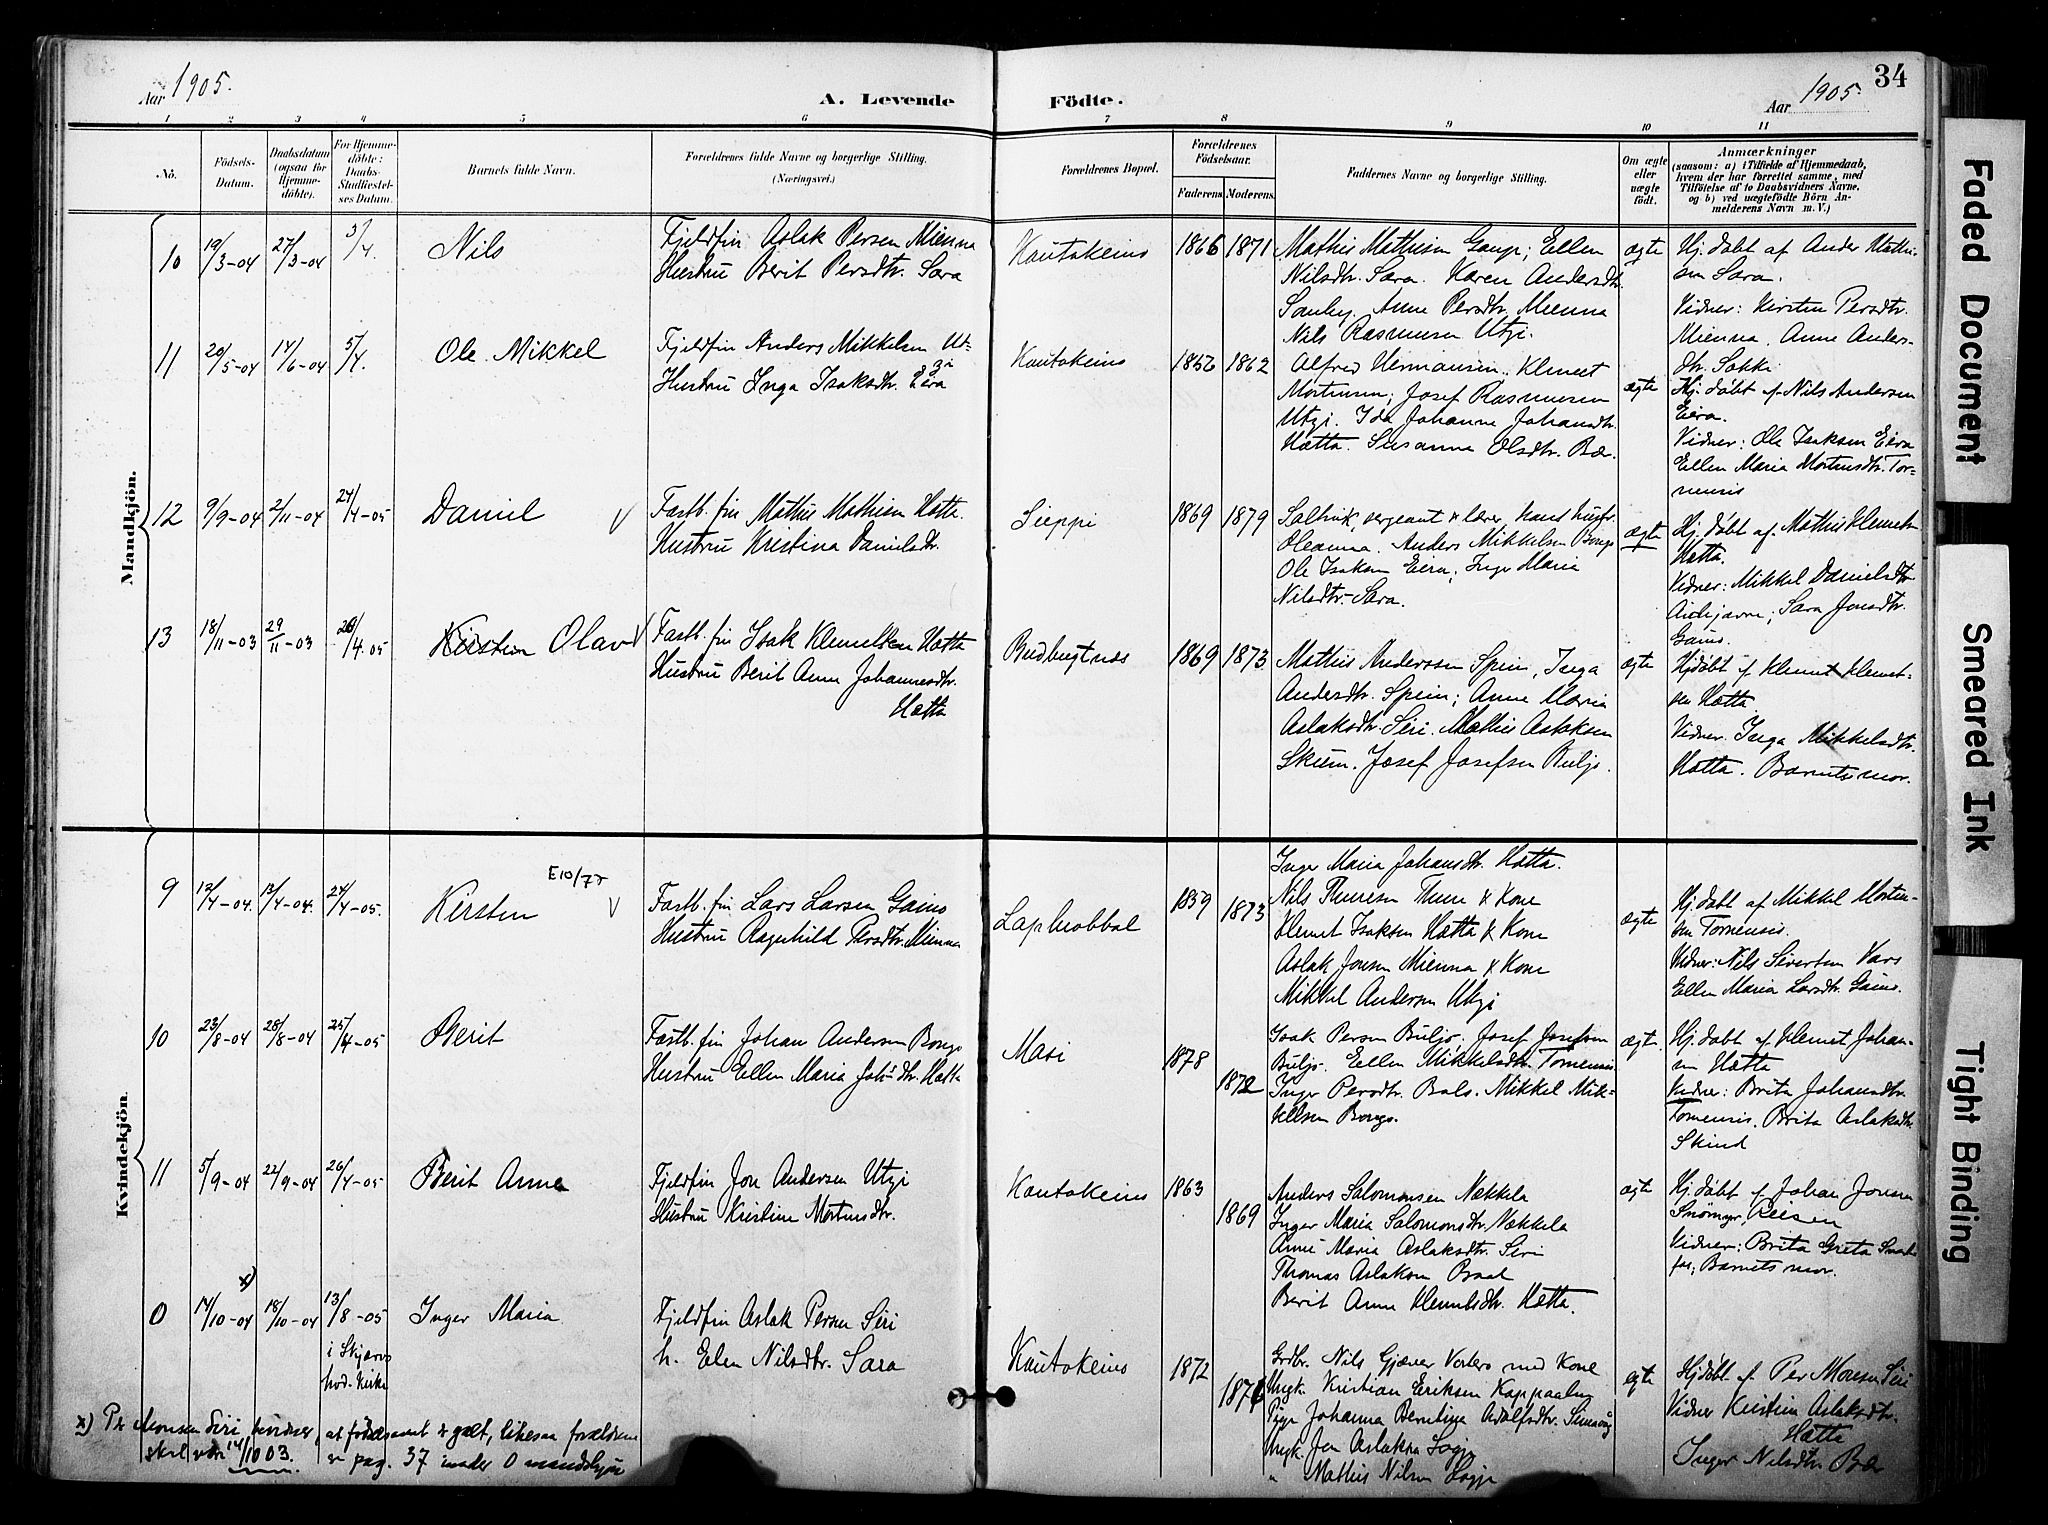 Aar 1905.
A. Levende
Födte.
Aar 1905.
34
1 2 3 4 5 6 7 8 9 10 11
No.
Födsels-
Datum.
Daabsdatum
(ogsaa for
Hjemme-
döbte).
For Hjemme-
döbte:
Daabs-
Stadfæstel-
ses Datum.
Barnets fulde Navn.
Forældrenes fulde Navne og borgerlige Stilling.
(Næringsvei.)
Forældrenes Bopæl.
Forældrenes
Födselsaar.
Faderens. Moderens.
Faddernes Navne og borgerlige Stilling.
Om ægte
eller
uægte
födt.
Anmærkninger
(saasom: a) i Tilfælde af Hjemmedaab,
hvem der har forrettet samme, med
Tilföielse af to Daabsvidners Navne,
og b) ved uægtefödte Börn An-
melderens Navn m. V.)
Mandkjön.
10
19/3-04
27/3-04
3/4.
Nils
Fjeldfin Aslak Persen Mienna
Hustru Berit Persdtr. Sara
Kautokeino
1866
1871
Mathis Mathisen Gaup; Ellen
Nilsdtr. Sara. Karen Andersdtr.
Somby. Anne Persdtr. Mienna
Nils Rasmusen Utzi.
ægte
Hj. døbt af Anders Mathi-
sen Sara.
Vidner: Kirsten Persdtr.
Mienna. Anne Anders-
dtr. Sokki
11
20/5-04
14/6-04
5/4.
Ole Mikkel
Fjeldfin Anders Mikkelsen Ut-
zi
Hustru Inga Isaksdtr. Eira
Kautokeino
1852
1862
Alfred Hermansen. Klemet
Mortensen; Josef Rasmusen
Utzi. Ida Johanne Johansdtr.
Hætta. Susanna Olsdtr. Bæ.
ægte
Hj. døbt af Nils Andersen
Eira.
Vidner: Ole Isaksen Eira
Ellen Maria Mortensdtr. Tor-
nensis
12
9/9-04
2/11-04
24/4-05
Daniel
Fastb. fin Mathis Mathisen Hætta.
Hustru Kristina Danielsdtr.
Sieppi
1869
1879
sergeant & lærer, hans hustr.
Oleanna. Anders Mikkelsen Bongo
Ole Isaksen Eira; Inger Maria
Nilsdtr. Sara.
ægte
Hj. døbt af Mathis Klemets.
Hætta.
Vidner: Mikkel Danielsdtr.
Sara Jonsdtr.
Gaino.
13
18/11-03
29/11-03
26/4.05
Kirsten Olav
Fastb. fin Isak Klemetsen Hætta
Hustru Berit Anne Johannesdtr.
Hætta
Budbugtnes
1869
1873.
Mathis Anderssen Spein, Inga
Andersdtr. Spein; Anne Maria
Aslaksdtr. Siri. Mathis Aslaksen
Skum. Josef Josefsen Buljo.
ægte
Hjdøbt af Klemet Klemet-
sen Hætta
Vidner. Inga Mikkelsdtr.
Hætta. Barnets mor.
Kvindekjön.
9
12/4-04.
13/4-04.
24/4-05.
E10/77
Kirsten
Fastb. fin Lars Larsen Gaino
Hustru Ragnhild Persdtr. Mienna
Laphobbal
1859
1873
Inger Maria Johansdtr. Hætta.
Nils Thuresen Thure & Kone
Klemet Isaksen Hætta & Kone
Aslak Jonsen Mienna & Kone
Mikkel Andersen Utzi
ægte
Hj. døbt af Mikkel Morten-
sen Tornensis.
Vidner: Nils Sivertsen Vars
Ellen Maria Larsdtr. Gaino.
10
23/8-04
28/8-04
25/4-05
Berit
Fastb. fin Johan Andersen Bongo
Hustru Ellen Maria Joh's dtr. Hætta
Masi
1878
1872
Isak Persen Buljo. Josef Josefsen
Buljo. Ellen Mikkelsdtr. Tornensis
Inger Persdtr. Bals. Mikkel Mik-
kelsen Bongo.
ægte.
Hj. døbt af Klemet Johan-
sen Hætta
Vidner: Brita Johansdtr.
Tornensis. Brita Aslaksdtr.
Skind
11
5/9-04
22/9-04
26/4-05
Berit Anne
Fjeldfin Jon Andersen Utzi
Hustru Kristine Mortensdtr.
Kautokeino
1863
1869
Anders Salomonsen Nækkela
Inger Maria Salomonsdtr. Nækkela
Anne Maria Aslaksdtr. Siri
Thomas Aslaksen Baal
Berit Anne Klemetsdtr. Hætta.
ægte
Hj. døbt af Johan Jonsen
Snømyr, Reisen
Vidner: Brita Greta
Barnets mor.
0
x)
14/10-04
18/10-04
13/8-05
i Skjervø
hvd. kirke
Inger Maria
Fjeldfin Aslak Persen Siri
h. Elen Nilsdtr. Sara
Kautokeino
1872
1871
Grdbr. Nils Gjæver med Kone
Ungk. Kristian Eriksen Kappaalng
Pige Johanna Berntine Adolfsdtr.
Ungk. Jon Aslaksen Logje
" Mathis Nilsen Logje
ægte
Hjdøbt af Per Monsen Siri
Vidner Kristin Aslaksdtr.
Hætta
Inger Nilsdtr. Bæ
x) Pr Monsen Siri, at fødselsaaret er galt, likesaa forældrene
skal være 14/10 03. se pag. 37 under 0 mandskjøn
Faded Document
Smeared Ink
Tight Binding